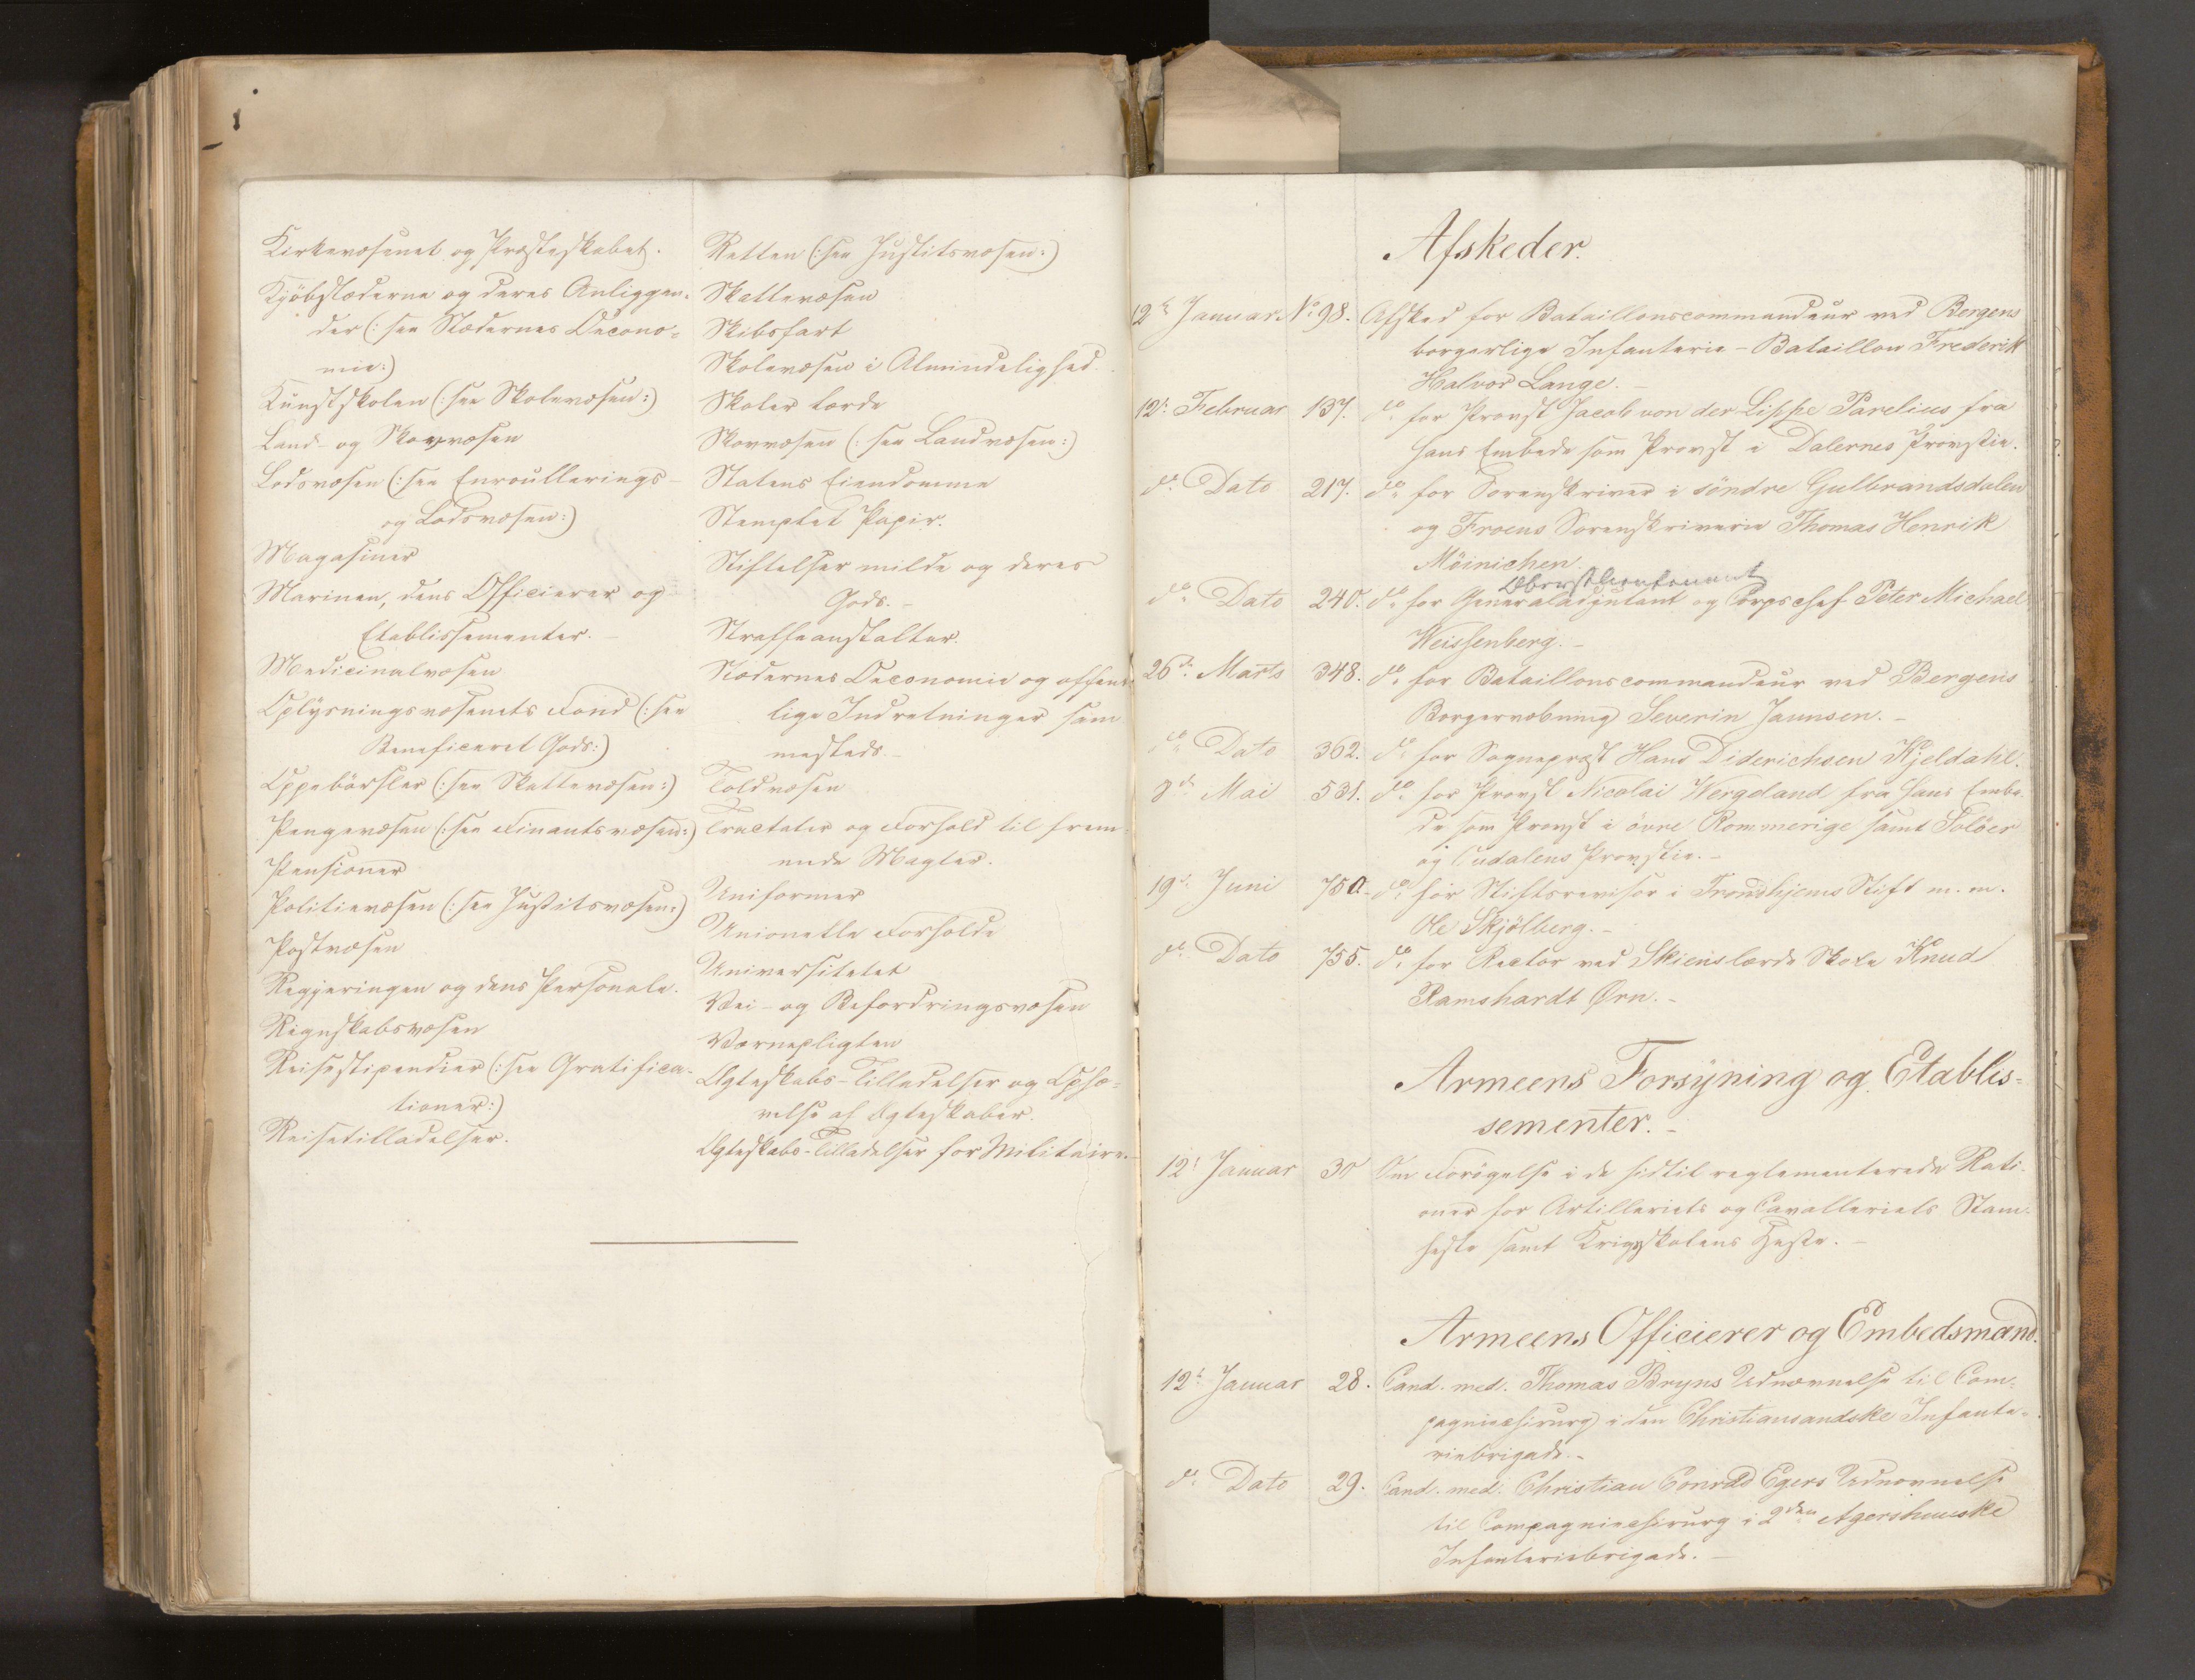 Kirkevæsenet og Præsteskabet.
Kjöbstæderne og deres Anliggen-
der (: see Stædernes Oecono-
mie:)
Kunstskolen (: see Skolevæsen:)
Land- og Skovvæsen
Lodsvæsen (: see Enroullerings-
og Lodsvæsen:)
Magasiner
Marinen, dens Officierer og
Etablissementer. -
Medicinalvæsen
Oplysningsvæsenets Fond (: see
Beneficeret Gods:)
Oppebörsler (: see Skattevæsen:)
Pengevæsen (: see Finantsvæsen:)
Pensioner
Politievæsen (: see Justitsvæsen:)
Postvæsen
Regjeringen og dens Personale.
Regnskabsvæsen
Reisestipendier (: see Gratifica-
tioner:)
Reisetilladelser.
Retten (: see Justitsvæsen:)
Skattevæsen
Skibsfart
Skolevæsen i Almindelighed.
Skoler lærde
Skovvæsen (: see Landvæsen:)
Statens Eiendomme
Stemplet Papir.
Stiftelser milde og deres
Gods. -
Straffeanstalter.
Stædernes Oeconomie og offent-
lige Indretninger sam-
mesteds -
Toldvæsen
Tractater og Forhold til frem-
mede Magter.
Uniformer
Unionelle Forholde
Universitetet
Vei- og Befordringsvæsen
Værnepligten
Ægteskabs-Tilladelser og Ophæ-
velse af Ægteskaber.
Ægteskabs-Tilladelser for Militaire. -
Afskeder.
12te Januar No 98. Afsked for Bataillonscommandeur ved Bergens
borgerlige Infanterie-Bataillon Frederik
Halvor Lange. -
12te Februar 137. do for Provst Jacob von der Lippe Parelius fra
hans Embede som Provst i Dalernes Provstie.
do Dato 217. do for Sorenskriver i söndre Gulbrandsdalen
og Froens Sorenskriverie Thomas Henrik
Möinichen.
Oberstlieutenant
do Dato 240. do for Generaladjutant og Corpschef Peter Michael
Weissenberg. -
26de Marts 348. do for Bataillonscommandeur ved Bergens
Borgervæbning Severin Jannsen. -
do Dato 362. do for Sognepræst Hans Diderichsen Kjeldahl.
8de Mai 531. do for Provst Nicolai Wergeland fra hans Embe-
de som Provst i övre Rommerige samt Solöer
og Oudalens Provstie. -
19de Juni 750. do for Stiftsrevisor i Trondhjems Stift m. m.
Ole Skjölberg. -
do Dato 755. do for Rector ved Skiens lærde Skole Knud
Ramshardt Ørn. -
Armeens Forsyning og Etablis-
sementer. -
12te Januar 30 Om Forögelse i de hidtil reglementerede Rati-
oner for Artilleriets og Cavalleriets Stam-
heste samt Krigsskolens Heste. -
Armeens Officierer og Embedsmænd.
12te Januar 28. Cand. med. Thomas Bryns Udnævnelse til Com-
pagniechirurg i den Christiansandske Infante-
riebrigade. -
do Dato 29. Cand. med. Christian Conrad Egers Udnævnelse
til Compagniechirurg i 2den Agershuuske
Infanteriebrigade. -